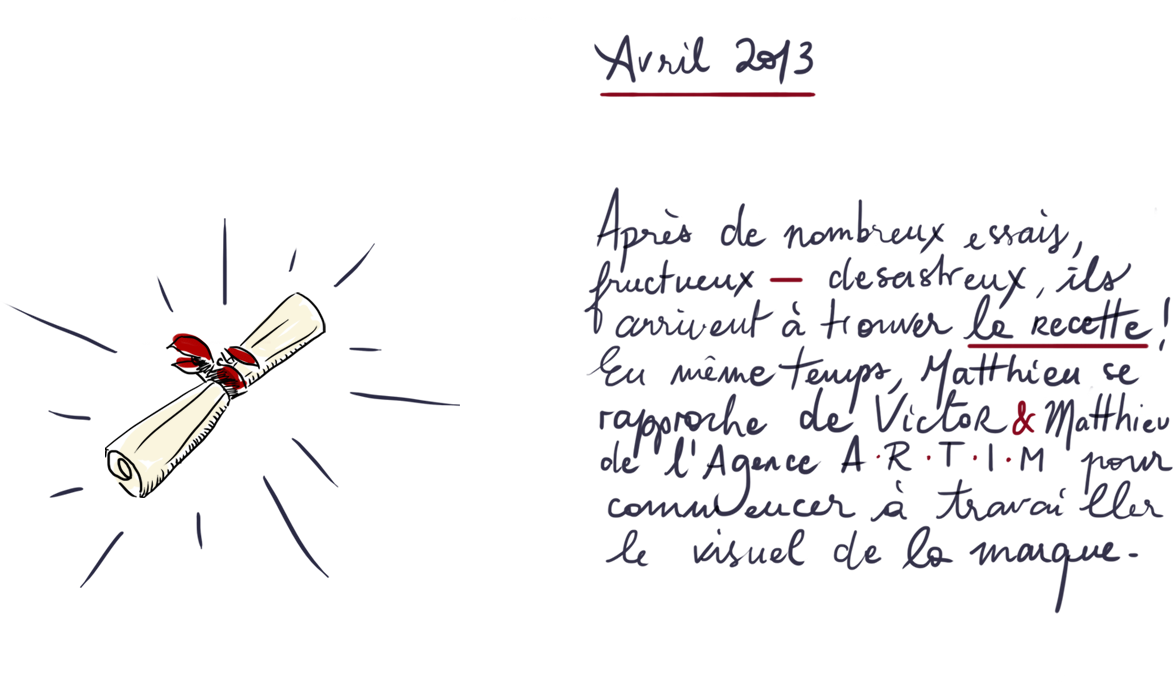 Avril 2013
Après de nombreux essais,
fructueux — desastreux, ils
arrivent à trouver la recette !
En même temps, Matthieu se
rapproche de Victor & Matthieu
de l'Agence A.R.T.I.M pour
commencer à travailler
le visuel de la marque.